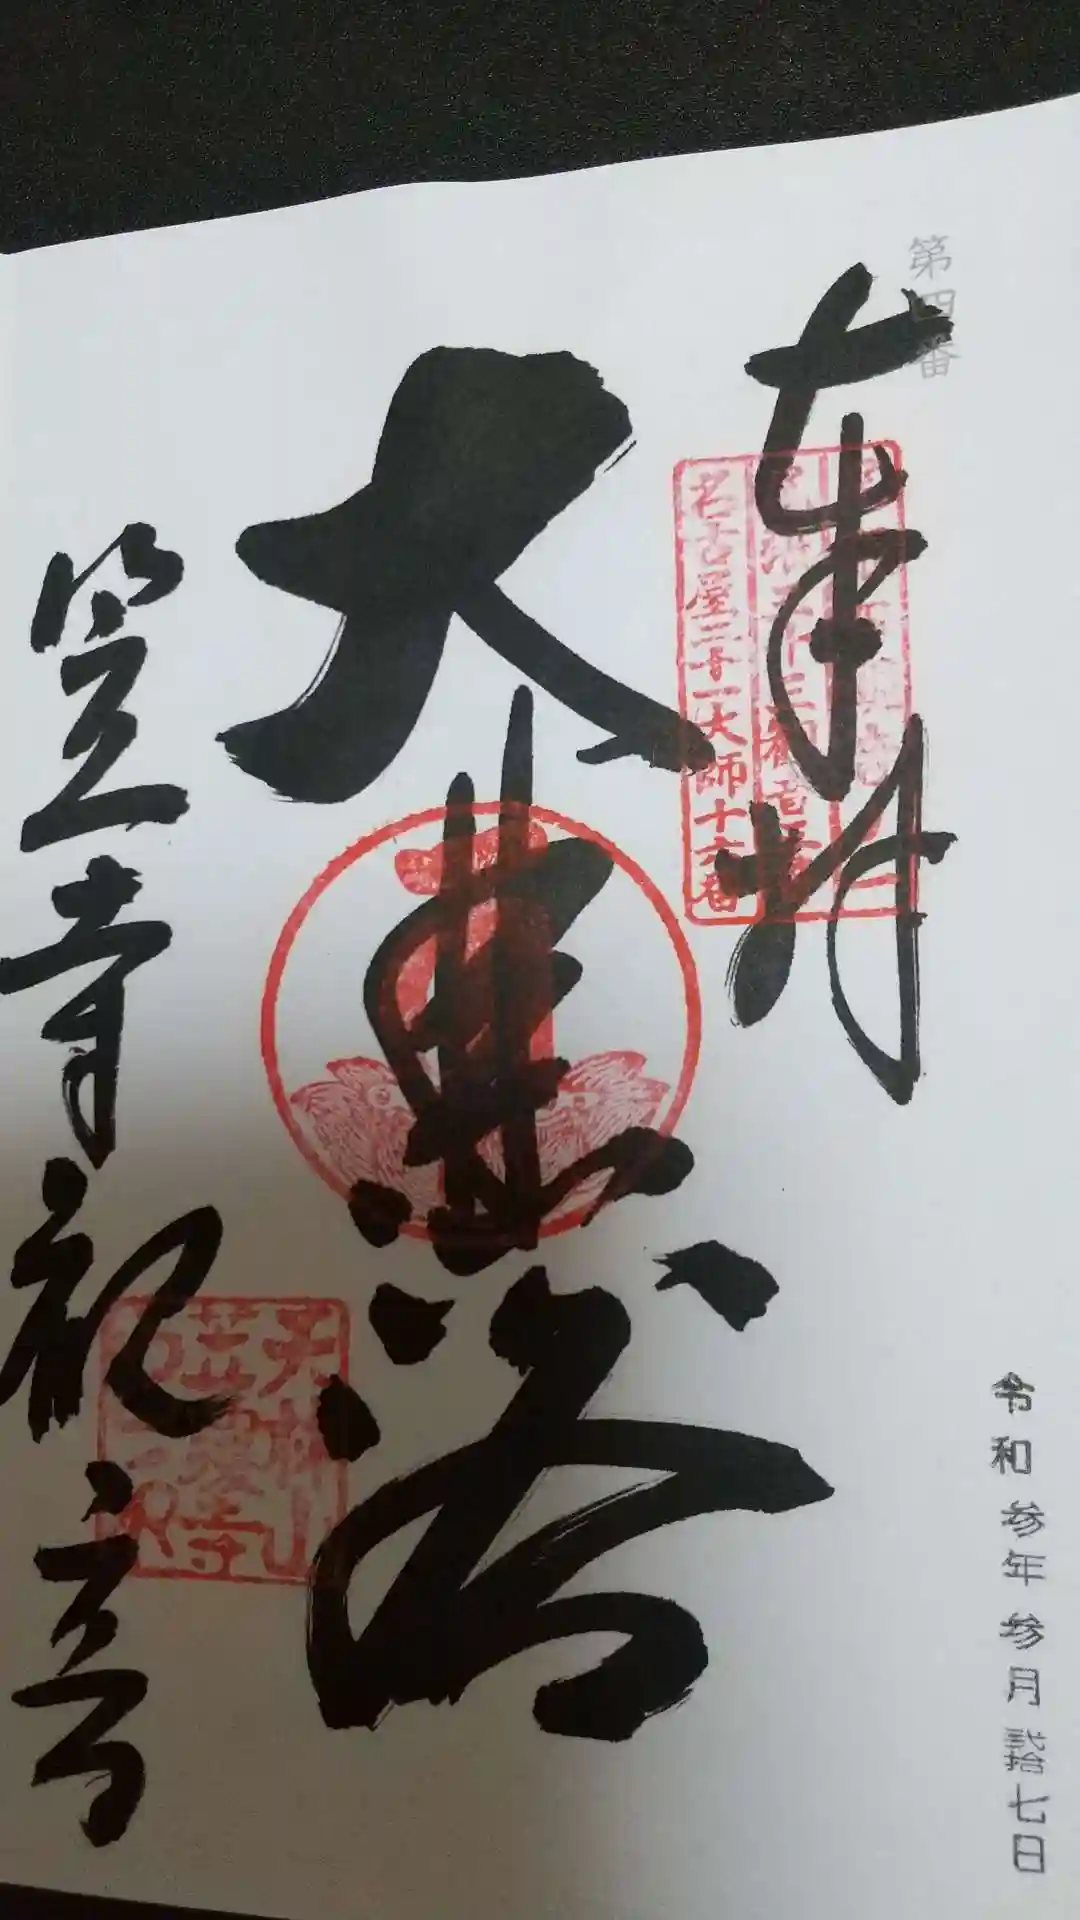 第四番
奉拝
名古屋二十一大師十六番
大悲殿
天林山
笠寺観音
令和参年参月弐拾七日